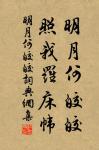 明月何皎皎
照我羅床幃
明月何皎皎詞典網集